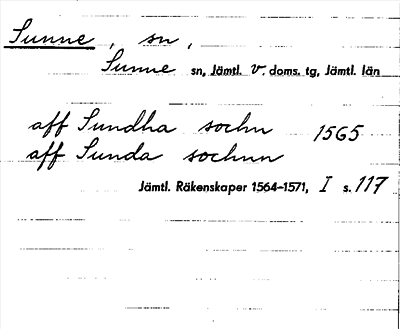 Sunne, sn,
Sunne sn, Jämtl. v. doms. tg, Jämtl. län
aff Sundha sochn 1565
aff Sunda sochnn
Jämtl. Räkenskaper 1564-1571, I s. 117